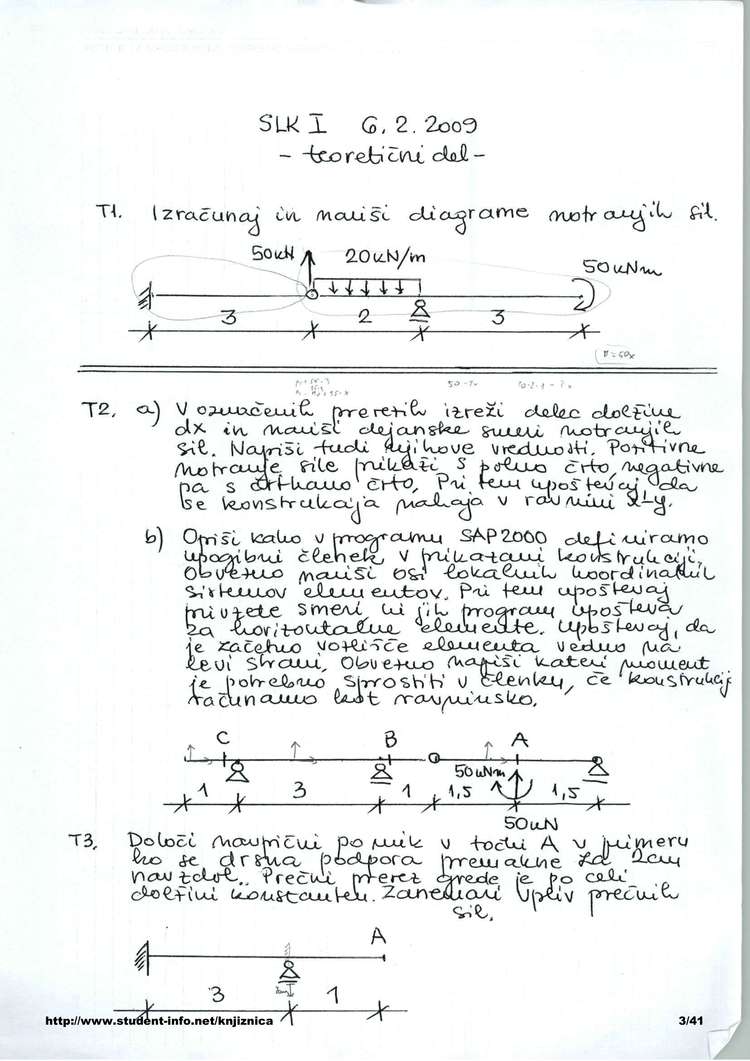 SLK I 6.2.2009
- teoretični del -
T1. Izračunaj in nariši diagrame notranjih sil.
50kN 20kN/m 50kNm
3 2 3
T2. a) V označenih prerezih izreži delec dolžine
dx in nariši dejanske smeri notranjih
sil. Napiši tudi njihove vrednosti. Pozitivne
notranje sile prikaži s polno črto, negativne
pa s črtkano črto. Pri tem upoštevaj da
se konstrukcija nahaja v ravnini x-y.
b) Opiši kako v programu SAP2000 definiramo
upogibni členek v prikazani konstrukciji.
Obvezno nariši osi lokalnih koordinatnih
sistemov elementov. Pri tem upoštevaj
privzete smeri, ki jih program upošteva
za horizontalne elemente. Upoštevaj, da
je začetno vozlišče elementa vedno na
levi strani. Obvezno napiši kateri moment
je potrebno sprostiti v členku, če konstrukcijo
računamo kot ravninsko.
C B A
50kNm
1 3 1 1,5 1,5
50kN
T3. Določi navpični pomik v točki A v primeru
ko se drsna podpora premakne za 2cm
navzdol. Prečni prerez grede je po celi
dolžini konstanten. Zanemari vpliv prečnih
sil.
A
3 1
http://www.student-info.net/knjiznica 3/41